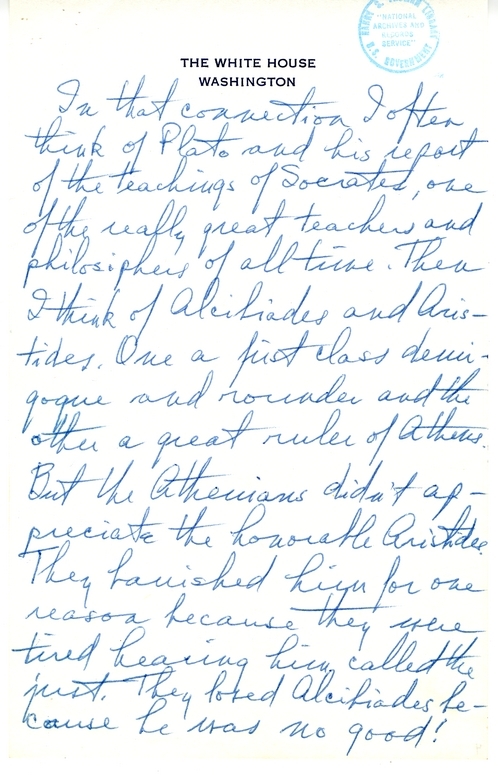 HARRY S. TRUMAN LIBRARY
"NATIONAL
ARCHIVES AND
RECORDS
SERVICE"
U.S. GOVERNMENT
THE WHITE HOUSE
WASHINGTON
In that connection I often
think of Plato and his report
of the teachings of Socrates, one
of the really great teachers and
philosiphers of all time. Then
I think of Alcibiades and Aris-
tides. One a first class demi-
gogue and rounder and the
other a great ruler of Athens.
But the Athenians didn't ap-
preciate the honorable Aristides.
They banished him for one
reason because they were
tired hearing him called the
just. They loved Alcibiades be-
cause he was no good!